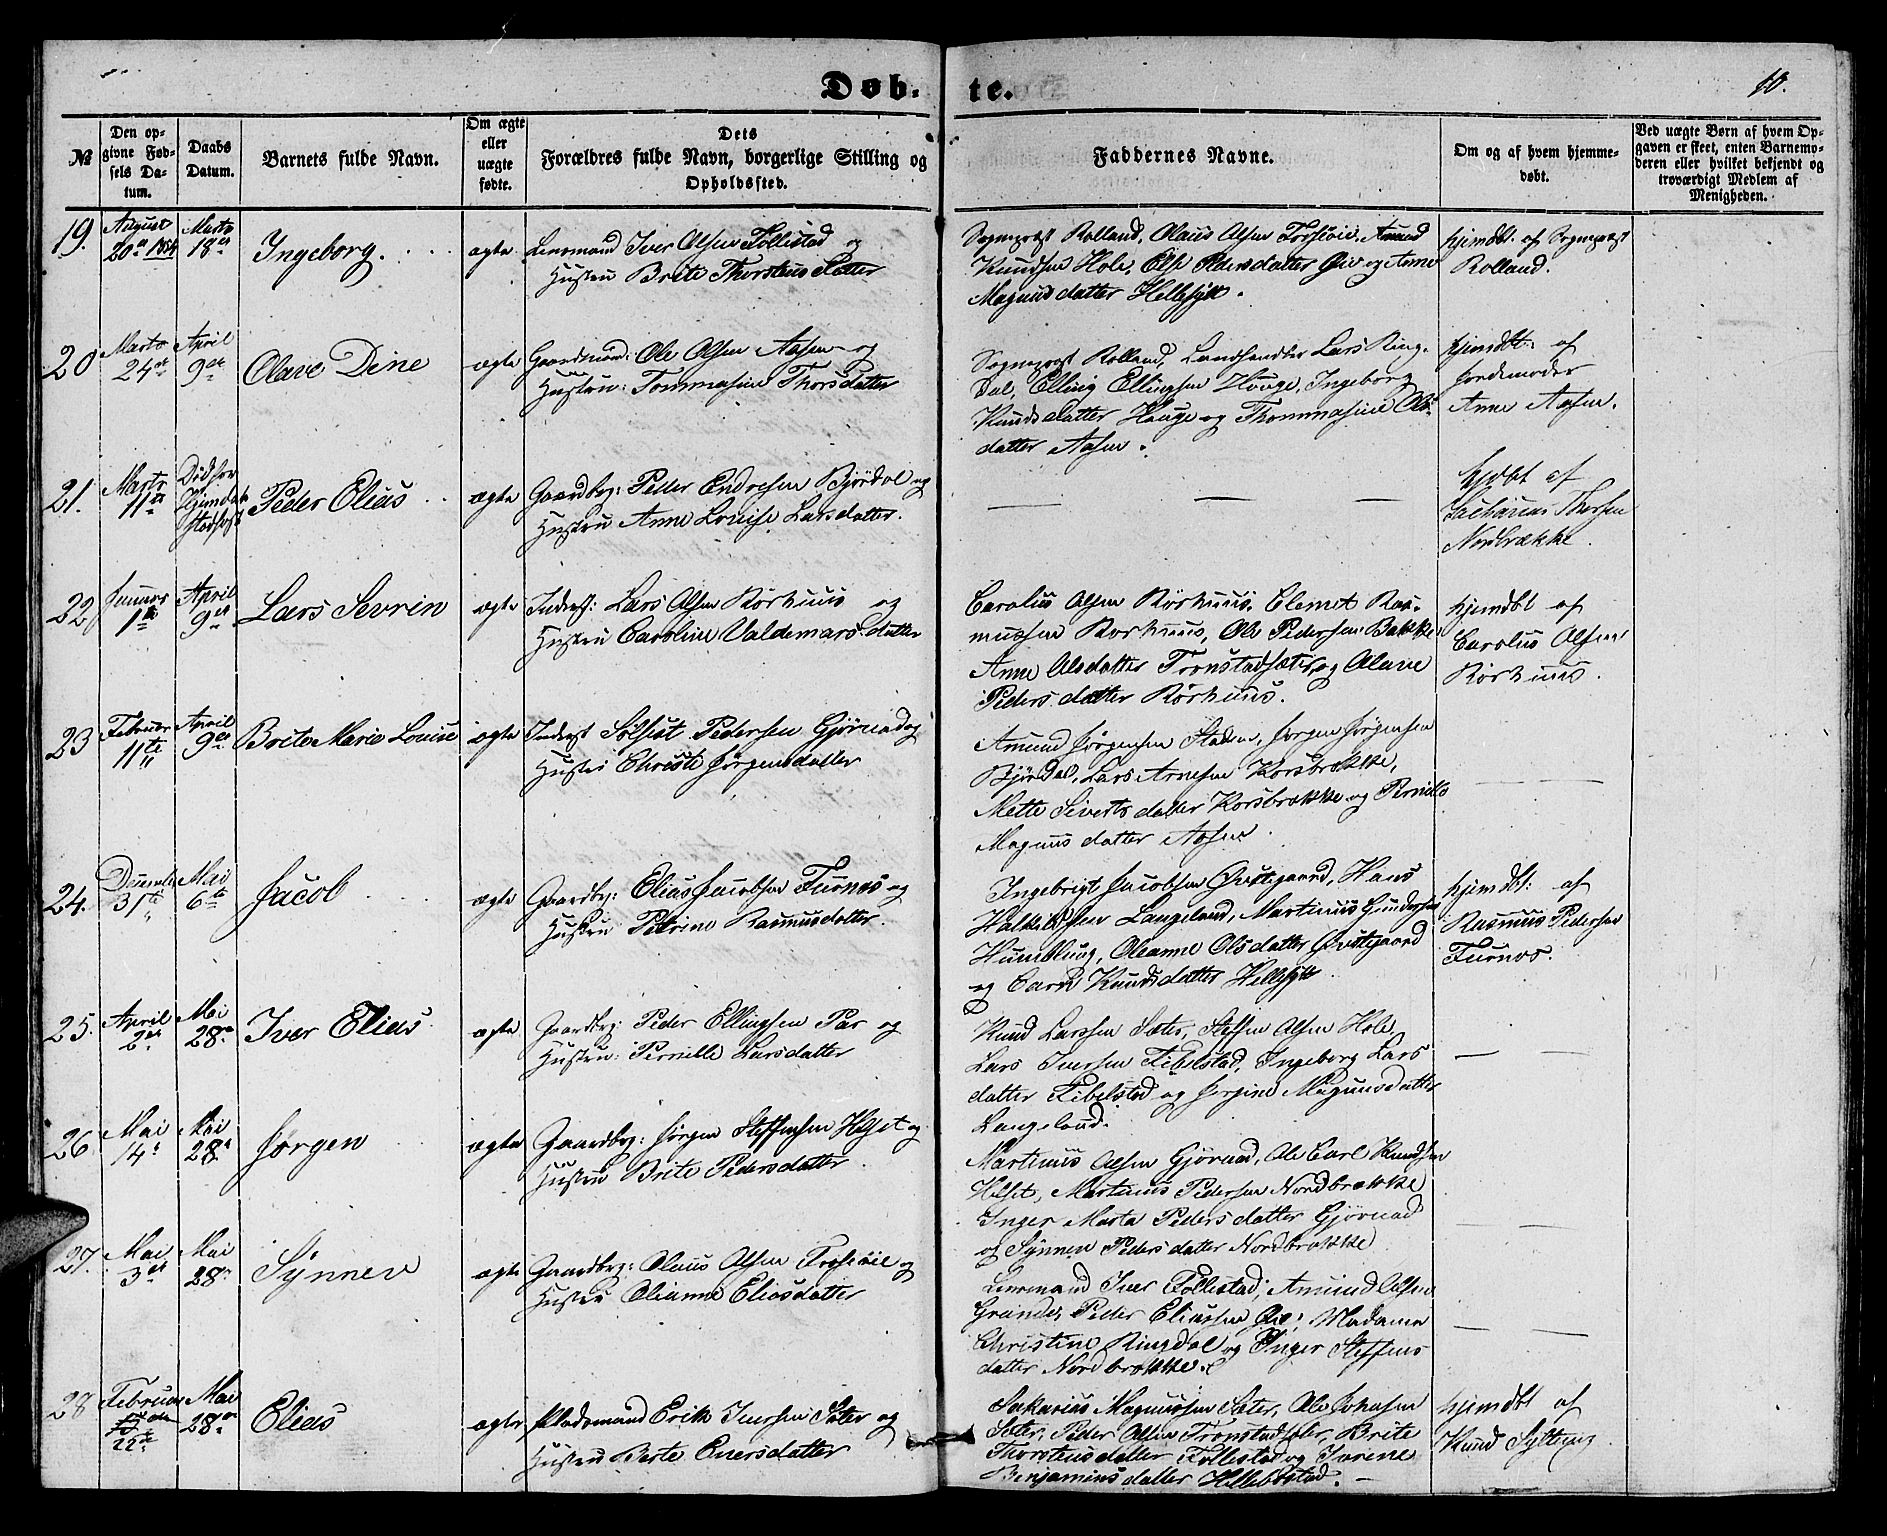 Døb-
te.
10.
№
Den op-
givne Fød-
sels Da-
tum.
Daabs
Datum.
Barnets fulde Navn.
Om ægte
eller
uægte
fødte.
Dets
Forældres fulde Navn, borgerlige Stilling og
Opholdssted.
Faddernes Navne.
Om og af hvem hjemme-
døbt.
Ved uægte Børn af hvem Op-
gaven er skeet, enten Barnemo-
deren eller hvilket bekjendt og
troværdigt Medlem af
Menigheden.
19.
August
20de 1854
Marts
18de
Ingeborg.
ægte
Lensmand Iver Olsen Follestad og
Hustru Brite Thorsteins Datter
Sogneprest Rolland, Olaus Olsen Amund
Knudsen Hole, Else Pedersdatter Øie og Anne
Magnus datter Hellesylt.
hjemdt. af Sogneprest
Rolland.
20
Marts
24de
April
9de
Olave Dine
ægte
Gaardmand: Ole Olsen Aasen og
Hustru: Tommasine Thorsdatter
Sogneprest Rolland, Landhandler Lars Ring-
dal, Elling Ellingsen Hauge, Ingeborg
Knudsdatter Hauge og Thommasine Ols-
datter Aasen.
hjemdt: af
Jordemoder
Anne Aasen.
21.
Marts
11te
Død før
Hjemdaab
stadfest
Peder Elias
ægte
Gaardbrg: Peder Endresen Bjørdal og
Hustru Anne Louise Larsdatter.
hjdøbt af
Sacharias Thorsen
Nordbrække.
22
Januar
1te
April
9de
Lars Sevrin
ægte
Inderst: Lars Olsen Rørhuus og
Hustru Caroline Valdemars datter
Carolus Olsen Rørhuus, Clemet Ras-
mussen Rorhuus, Ole Pedersen Bakke
Anne Olsdatter Tronstadsæter og Olave
Peders datter Rørhuus.
hjemdbt af
Carolus Olsen
Rørhuus.
23
Februar
11te
April
9de
Brite Marie Louise
ægte
Inderst Solfest Pedersen Gjørvad og
Hustru Christi Jørgensdatter
Amund Jørgensen Stadem, Jørgen Jørgensen
Bjørdal, Lars Arnesen Korsbrække,
Mette Siverts datter Korsbrække og Pernille
Magnus datter Aasen.
24.
December
31te
Mai
6te
Jacob
ægte
Gaardbrg: Elias Jacobsen Furnes og
Hustru Petrine Rasmusdatter.
Ingebrigt Jacobsen Øvstegaard, Hans
Langeland, Martinus Gundersen
Humblung, Oleanne Olsdatter Øvstegaard
og Knudsdatter Hellesylt.
hjemdt: af
Rasmus Pedersen
Furnes.
25.
April
2den
Mai
28de
Iver Elias
ægte
Gaardbrg: Peder Ellingsen Par og
Hustru: Pernille Larsdatter
Knud Larssen Sæter, Steffen Olsen Hole,
Lars Iversen Fibelstad, Ingeborg Lars
datter Fibelstad og Jørgine Magnusdatter
Langeland.
26
Mai
14de
Mai
28de
Jørgen
ægte
Gaardbrg: Jørgen Steffensen Helset og
Hustru Brite Pedersdatter.
Martinus Olsen Gjørvad, Ole Carl Knudsen
Helset, Martinus Pedersen Nordbrække
Inger Marta Peders datter Gjørvad
og Synnev Peders datter Nordbrække
27.
Mai
3de
Mai
28de
Synnev
ægte
Gaardbrg: Olaus Olsen og
Hustru Olianne Eliasdatter
Lensmand Iver Follestad, Amund Olsen
Grande, Peder Eliassen Øie, Madame
Christine Ringdal og Inger Steffens
datter Nordbrække.
28
Februar
22de
Mai
28de
Elias
ægte
Pladsmand Erik Iversen Sæter og
Hustru Berte Enersdatter
Sakarias Magnussen Sæter, Ole Johnsen
Sæter, Peder Olsen Tronstadsæter, Brite
Thorsteins datter Follestad og Severine
Benjamins datter Hellebostad.
hjemdbt af
Knud Syltevig